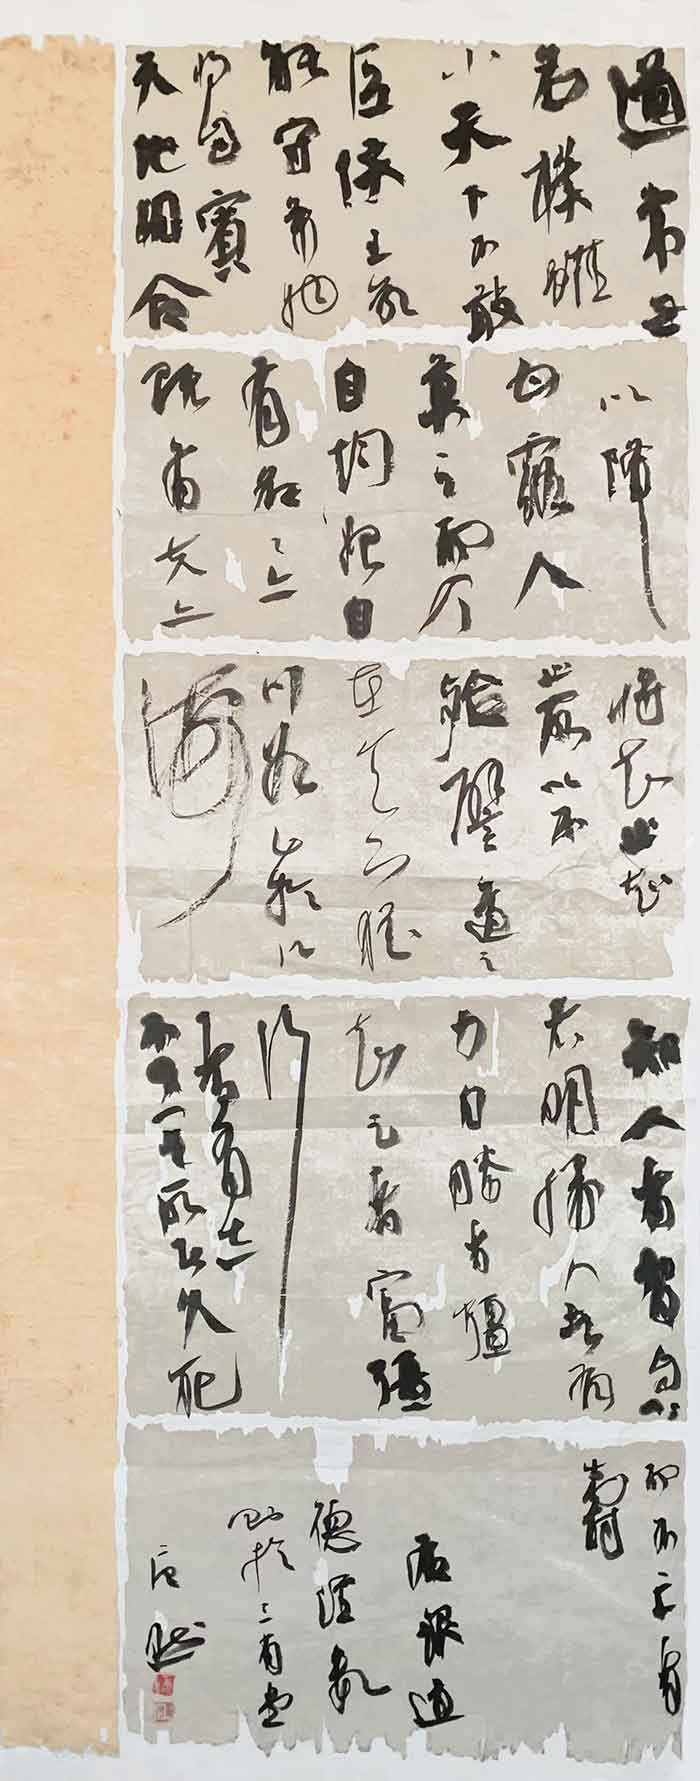 道常無
名樸雖
小天下不敢
臣侯王若
能守萬物
將自賓
天地相合
以降
甘露人
莫之而令
自均始
有名名亦
既有夫亦
將知止知
止所以不
殆譬道之
在天下猶
川谷之於江
海
知人者智自知
者明勝人者有
力自勝者彊
知足者富強
行
者有志
不失其所者久死
而不亡者
壽
右錄道
德經
於三省堂